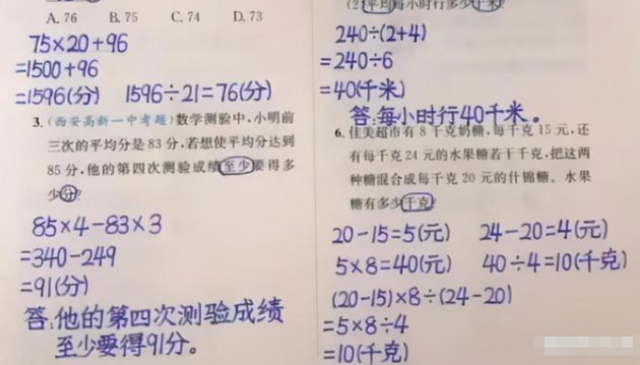 A. 76 B. 75 C. 74 D. 73
75×20+96
=1500+96
=1596(分) 1596÷21=76(分)
3. (西安高新一中考题)数学测验中,小明前
三次的平均分是 83 分,若想使平均分达到
85 分,他的第四次测验成绩至少要得多
少分?
85×4-83×3
=340-249
=91(分)
答:他的第四次测验成绩
至少要得91分。
(2)平均每小时行多少千米?
240÷(2+4)
=240÷6
=40(千米)
答:每小时行40千米。
6. 佳美超市有 8 千克奶糖,每千克 15 元,还
有每千克 24 元的水果糖若干千克,把这两
种糖混合成每千克 20 元的什锦糖。水果
糖有多少千克?
20-15=5(元) 24-20=4(元)
5×8=40(元) 40÷4=10(千克)
(20-15)×8÷(24-20)
=5×8÷4
=10(千克)